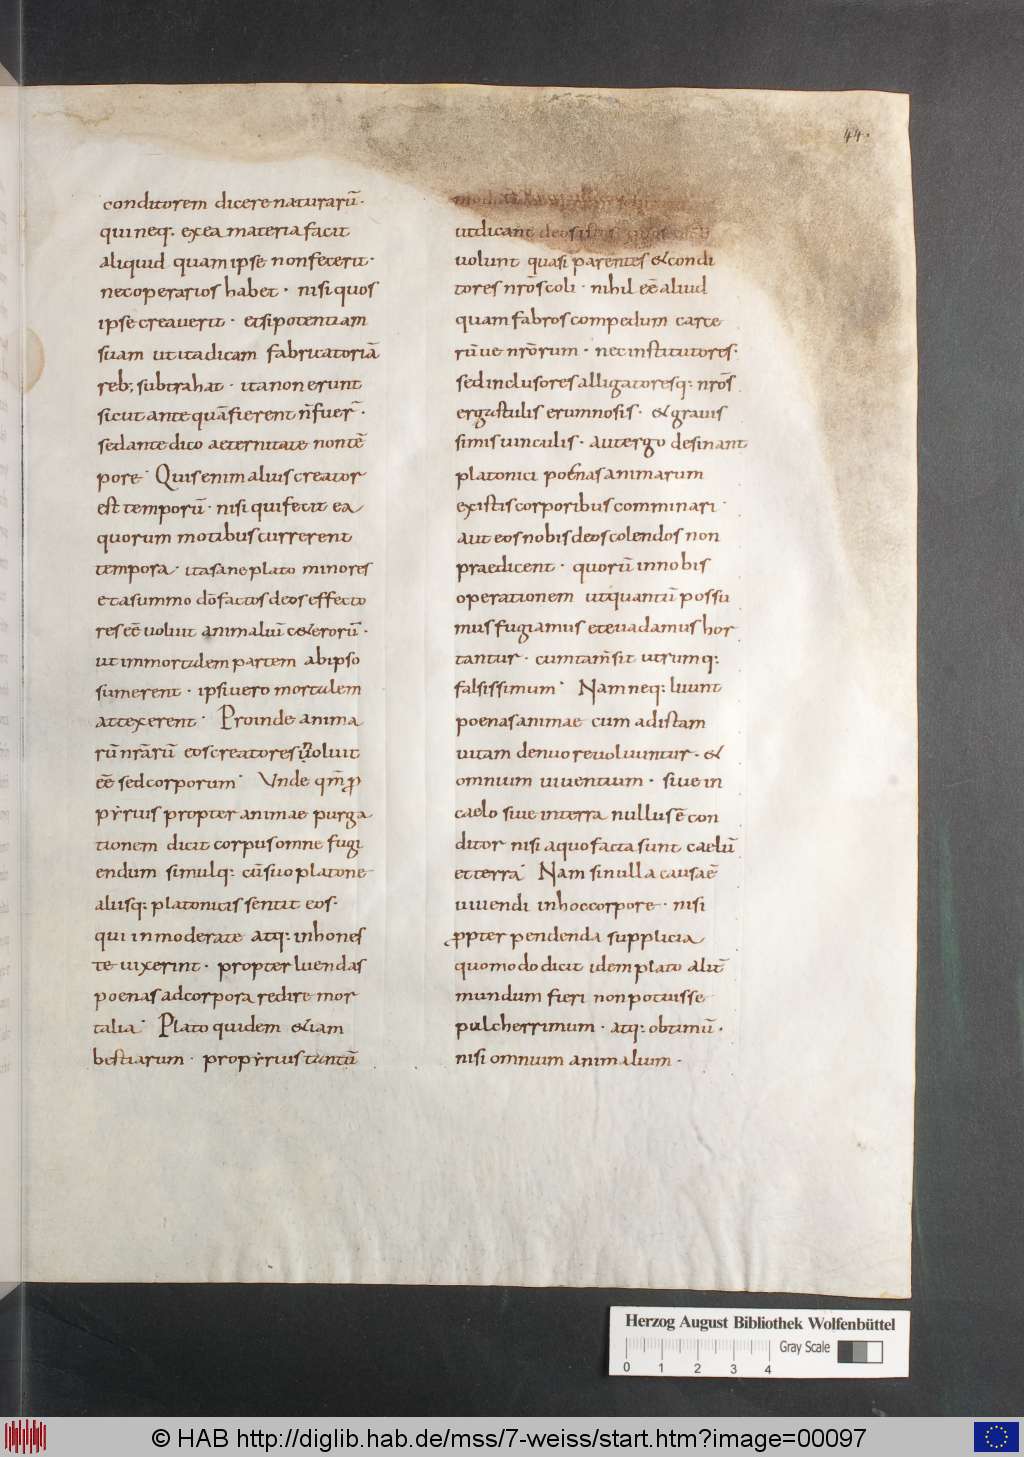 44.
conditorem dicere naturarū·
qui neq; ex ea materia facit
aliquid quam ipse non fecerit·
nec operarios habet· nisi quos
ipse creauerit· et si potentiam
suam ut ita dicam fabricatoriā
reb; subtrahat· ita non erunt
sicut ante quā fierent ñ fuer̄·
sed ante dico aeternitate non tē
pore· Quis enim alius creator
est temporū· nisi qui fecit ea
quorum motibus currerent
tempora· ita sane plato minores
et a summo dō factos deos effecto
res eē uoluit animaliū ceterorū·
ut immortalem partem ab ipso
sumerent· ipsi uero mortalem
attexerent· Proinde anima
rū nr̄arū eos creatores ñ uoluit
eē sed corporum· Vnde qm̄ por
pẏrius propter animae purga
tionem dicit corpus omne fugi
endum simulq; cū suo platone
aliisq; platonicis sentit eos·
qui inmoderate atq; inhones
te uixerint· propter luendas
poenas ad corpora redire mor
talia· Plato quidem etiam
bestiarum· propẏrius tantū
ut dicant deos istos
uolunt quasi parentes et condi
tores nr̄os coli· nihil eē aliud
quam fabros compedum carce
rūue nr̄orum· nec institutores·
sed inclusores alligatoresq; nr̄os
ergastulis erumnosis· et grauis
simis uinculis· aut ergo desinant
platonici poenas animarum
ex istis corporibus comminari·
aut eos nobis deos colendos non
praedicent· quorū in nobis
operationem ut quantū possu
mus fugiamus et euadamus hor
tantur· cum tam̄ sit utrumq;
falsissimum· Nam neq; luunt
poenas animae cum ad istam
uitam denuo reuoluuntur· et
omnium uiuentium· siue in
caelo siue in terra nullus ē con
ditor nisi a quo facta sunt caelū
et terra· Nam si nulla causa ē
uiuendi in hoc corpore· nisi
ꝓpter pendenda supplicia
quomodo dicit idem plato alit̄
mundum fieri non potuisse
pulcherrimum· atq; obtimū·
nisi omnium animalium·
Herzog August Bibliothek Wolfenbüttel
Gray Scale
0 1 2 3 4
© HAB http://diglib.hab.de/mss/7-weiss/start.htm?image=00097